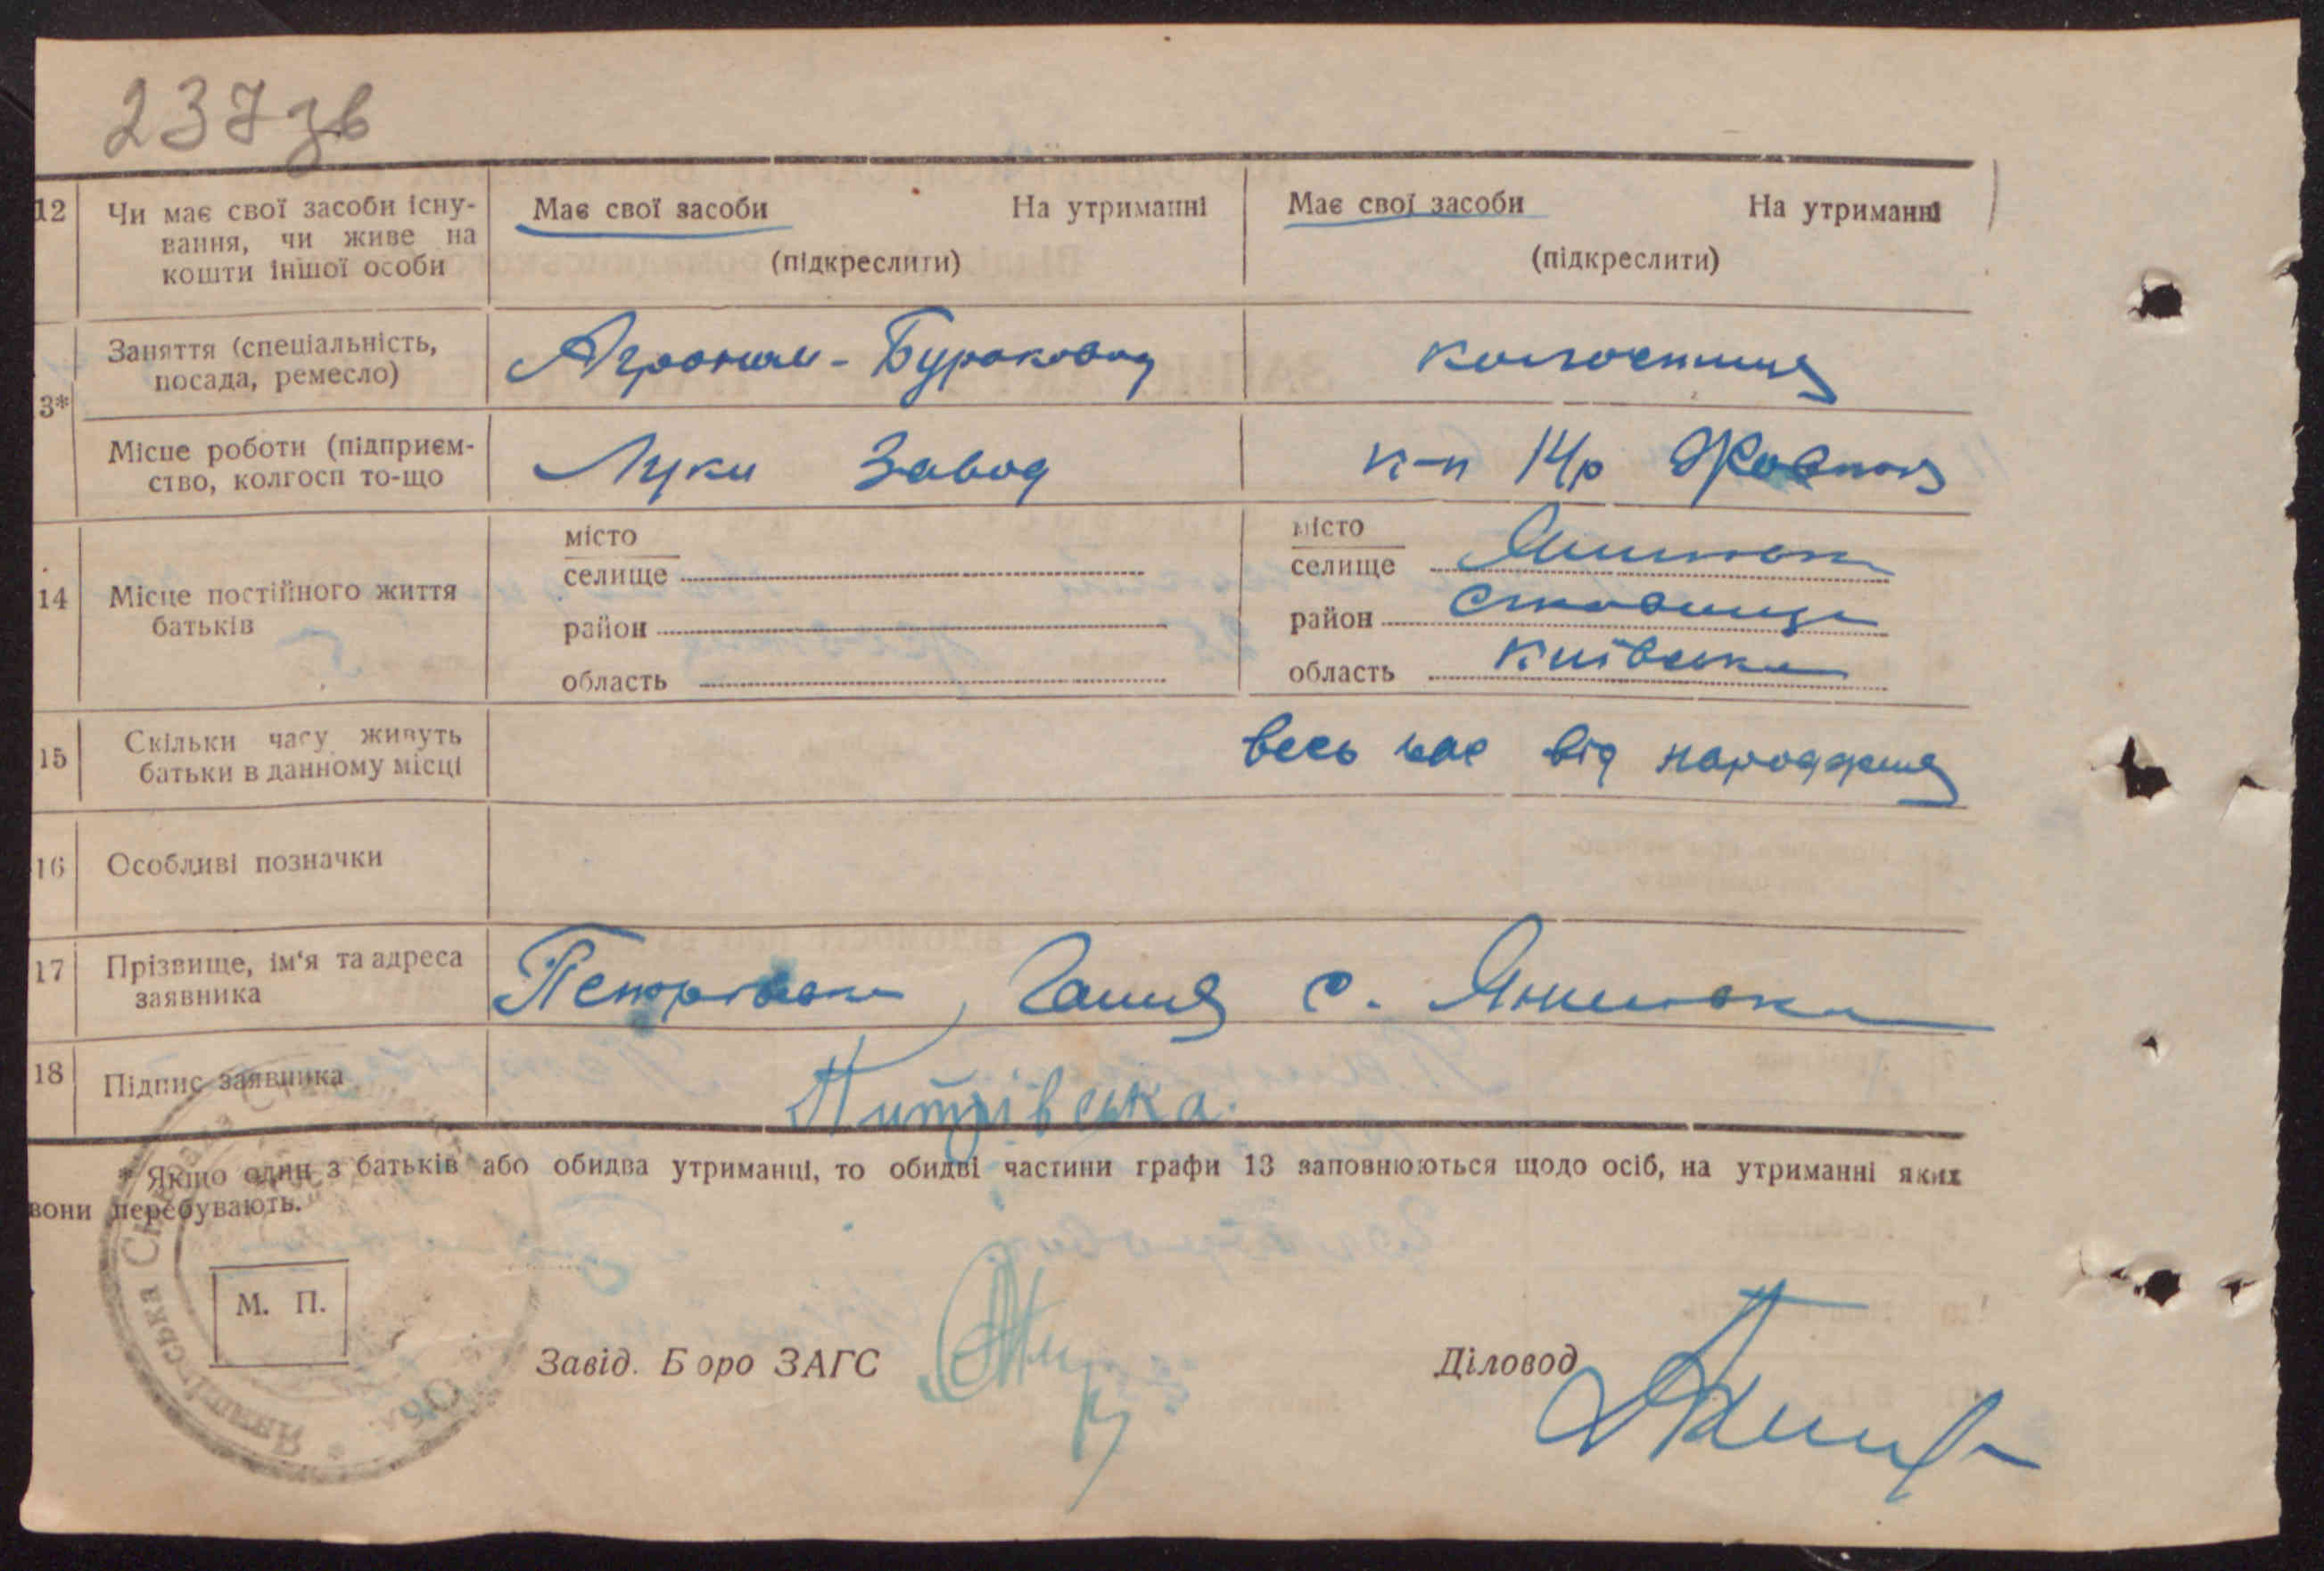 237 зв
12 Чи має свої засоби існу- Має свої засоби На утриманні Має свої засоби На утриманні
вання, чи живе на
кошти іншої особи (підкреслити) (підкреслити)
Заняття (спеціальність, Агроном - Буряковод колгоспниця
посада, ремесло)
3*
Місце роботи (підприєм- Луки Завод к-п 14/р Жовтня
ство, колгосп то-що
місто місто
селище селище Янишівка
14 Місце постійного життя
батьків район район Ставище
область область Київська
15 Скільки часу живуть весь час від народження
батьки в данному місці
16 Особливі позначки
17 Прізвище, ім'я та адреса Петрівська, Ганна с. Янишівка
заявника
18 Підпис заявника Питрівська.
* Якщо один з батьків або обидва утриманці, то обидві частини графи 13 заповнюються щодо осіб, на утриманні яких
вони перебувають.
М. П.
Завід. Бюро ЗАГС Діловод